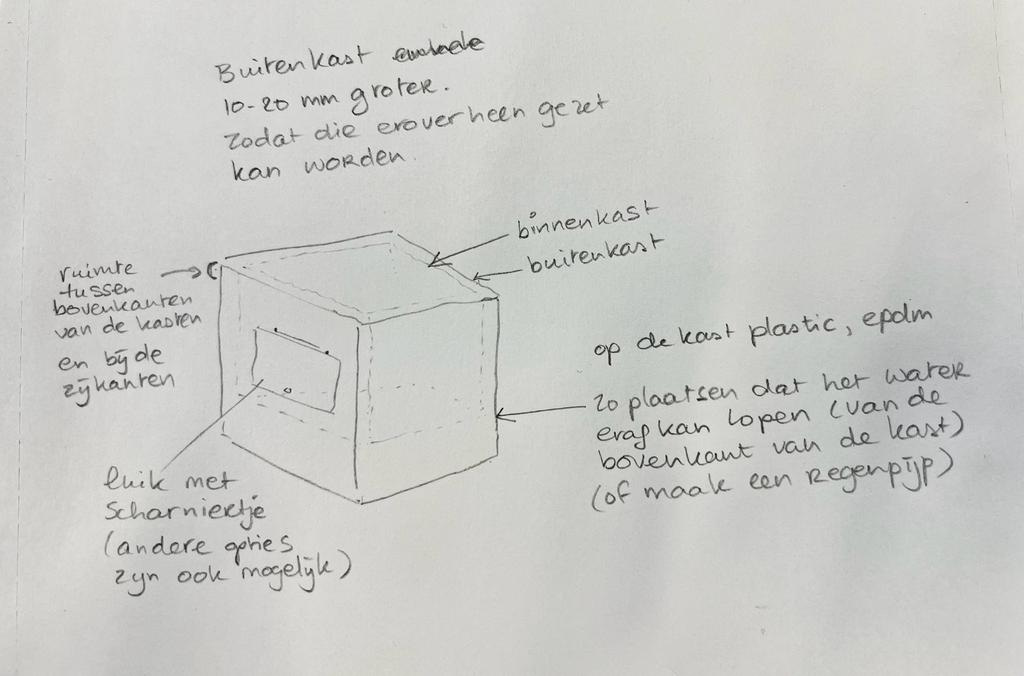 Buitenkast
10-20 mm groter.
zodat die eroverheen gezet
kan worden.
binnenkast
buitenkast
ruimte
tussen
bovenkanten
van de kasten
en bij de
zijkanten
op de kast plastic, epdm
zo plaatsen dat het water
eraf kan lopen (van de
bovenkant van de kast)
(of maak een regenpijp)
luik met
scharniertje
(andere opties
zijn ook mogelijk)